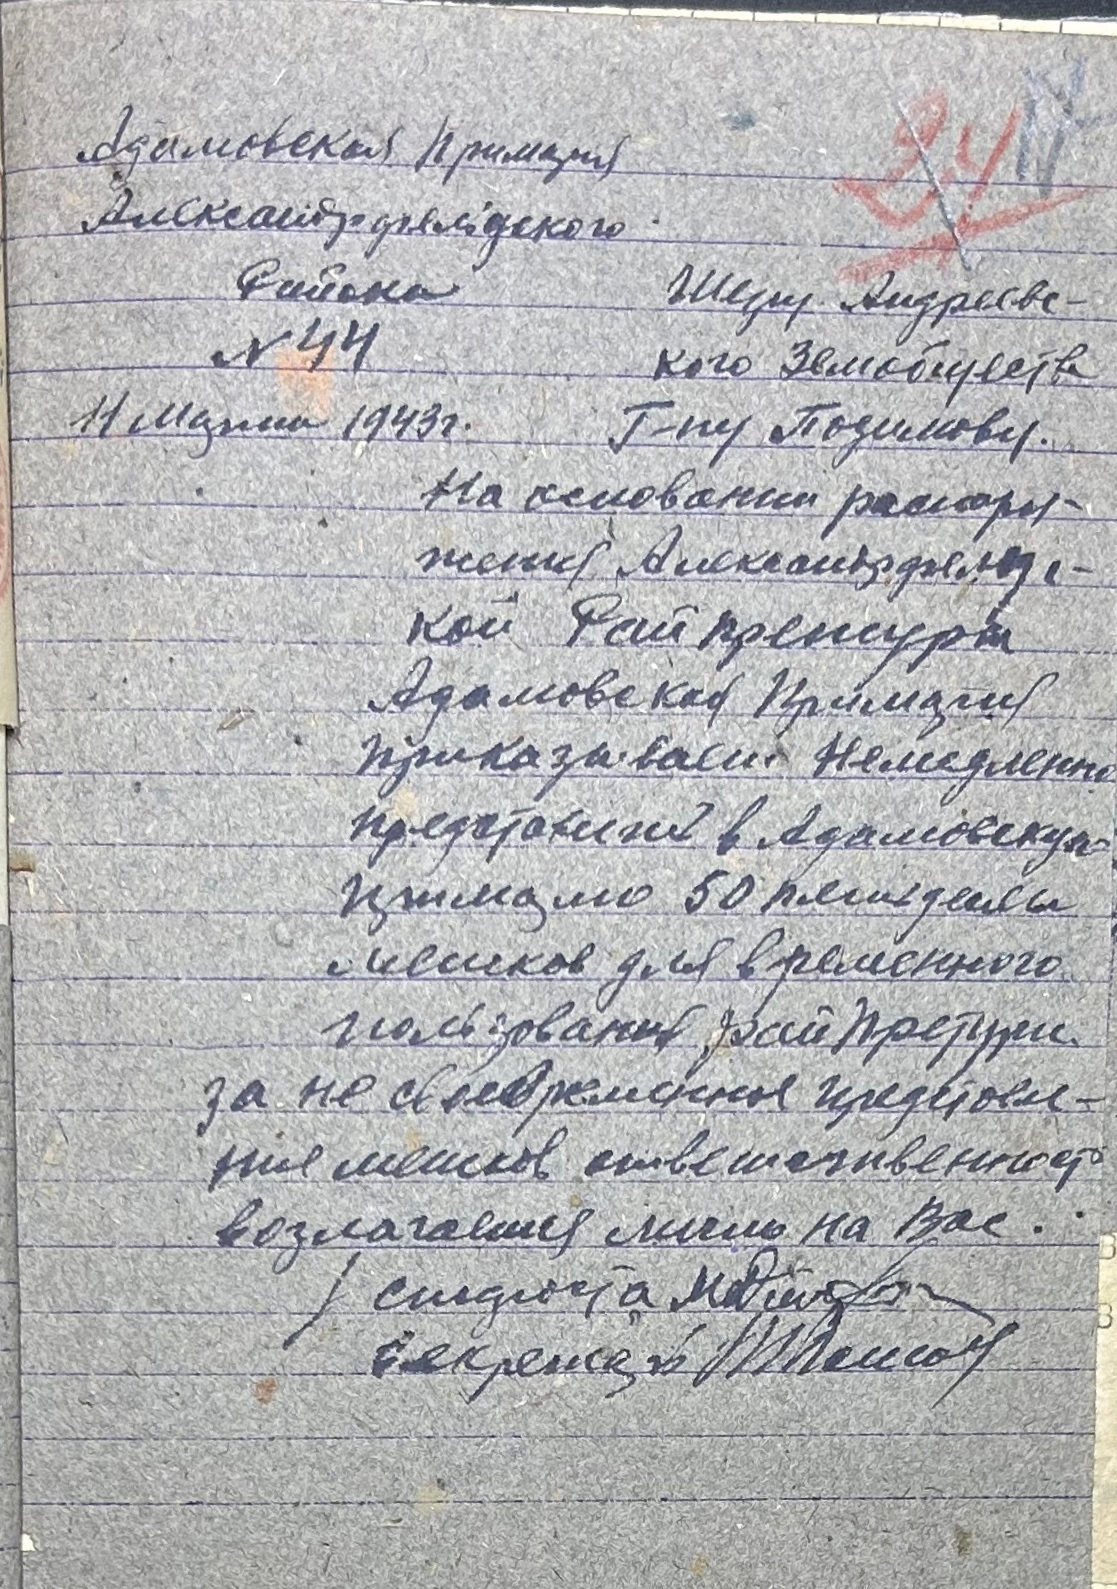 24
Адамовская Примария
Александрфельдского
Района
N 44
11 Марта 1943 г.
Шефу Андреевс-
кого Земобщества
Г-ну Подимову.
На основании распоря-
жения Александрфельдс-
кой Райпретуры
Адамовская Примария
приказывает Немедленно
предоставить в Адамовскую
Примарию 50 пятьдесят
мешков для временного
пользования райпретуры.
за не своевременное предостав-
ние мешков ответственность
возлагается лично на Вас.
Староста
Секретарь